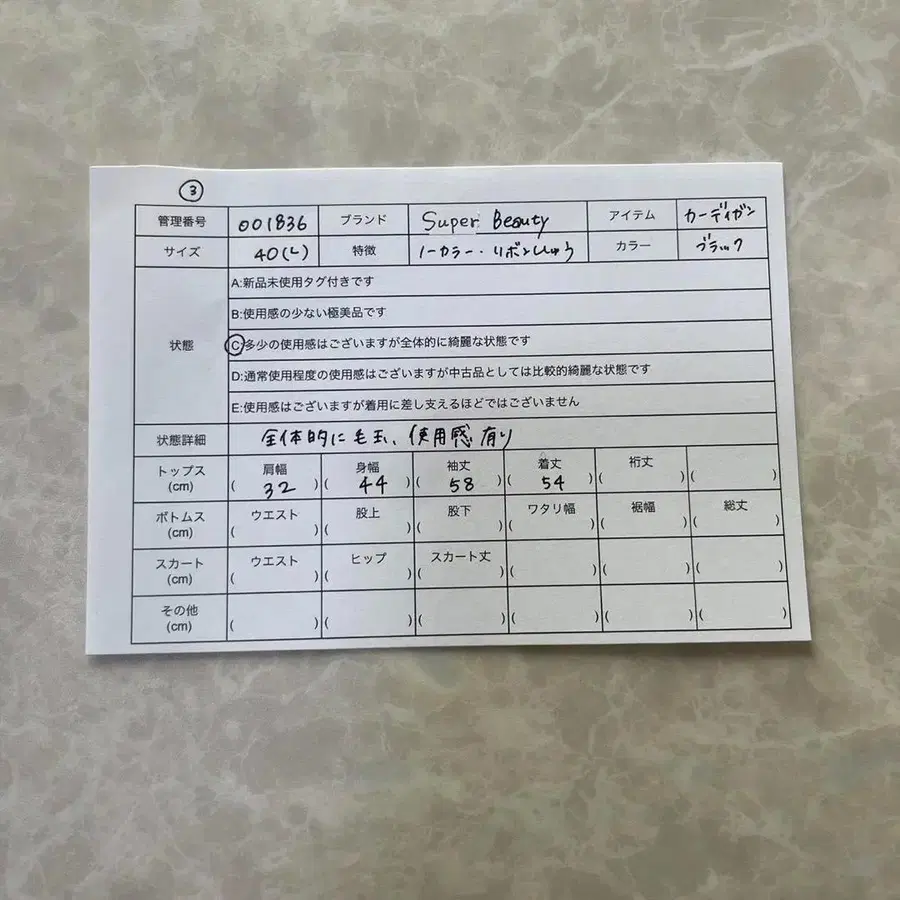 ③
管理番号 001836 ブランド Super Beauty アイテム カーディガン
サイズ 40(L) 特徴 ノーカラー・リボンししゅう カラー ブラック
状態
A:新品未使用タグ付きです
B:使用感の少ない極美品です
C:多少の使用感はございますが全体的に綺麗な状態です
D:通常使用程度の使用感はございますが中古品としては比較的綺麗な状態です
E:使用感はございますが着用に差し支えるほどではございません
状態詳細 全体的に毛玉、使用感有り
トップス 肩幅 身幅 袖丈 着丈 裄丈
(cm) ( 32 ) ( 44 ) ( 58 ) ( 54 ) ( ) ( )
ボトムス ウエスト 股上 股下 ワタリ幅 裾幅 総丈
(cm) ( ) ( ) ( ) ( ) ( ) ( )
スカート ウエスト ヒップ スカート丈
(cm) ( ) ( ) ( ) ( ) ( ) ( )
その他
(cm) ( ) ( ) ( ) ( ) ( ) ( )